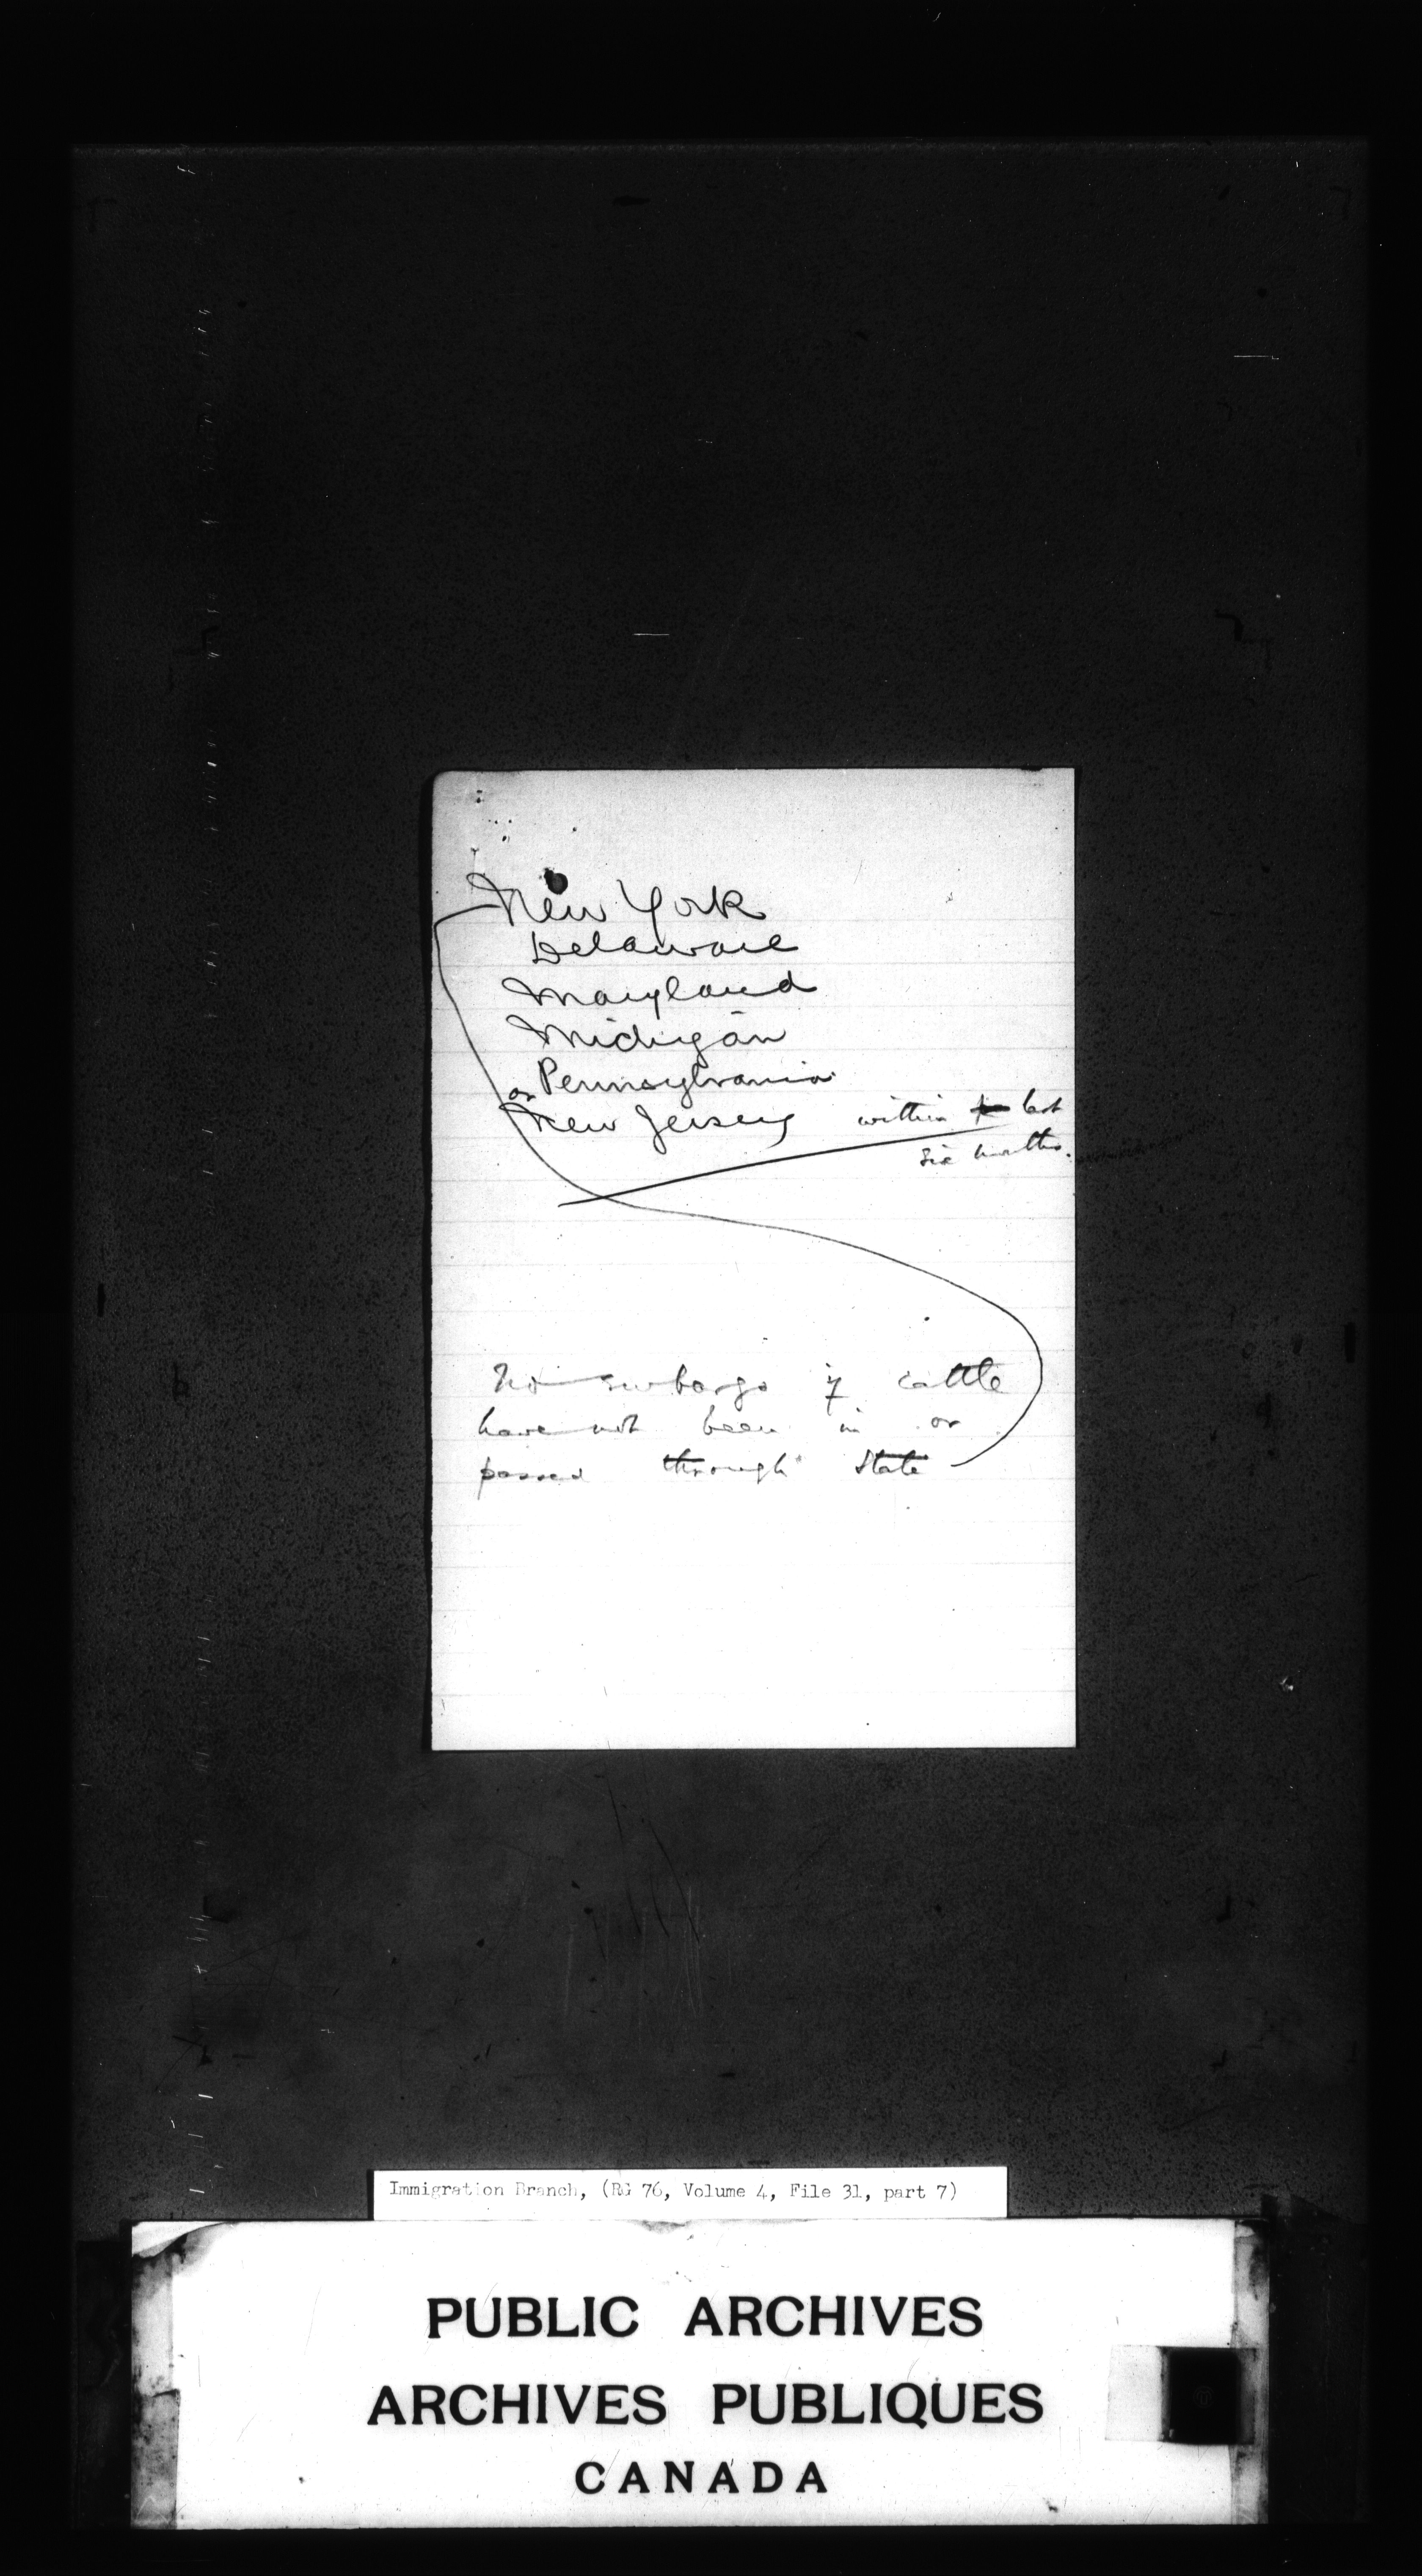 New York
Delaware
Maryland
Michigan
or Pennsylvania
New Jersey within last
six months.
No embargo if cattle
have not been in or
passed through State
Immigration Branch, (RG 76, Volume 4, File 31, part 7)
PUBLIC ARCHIVES
ARCHIVES PUBLIQUES
CANADA